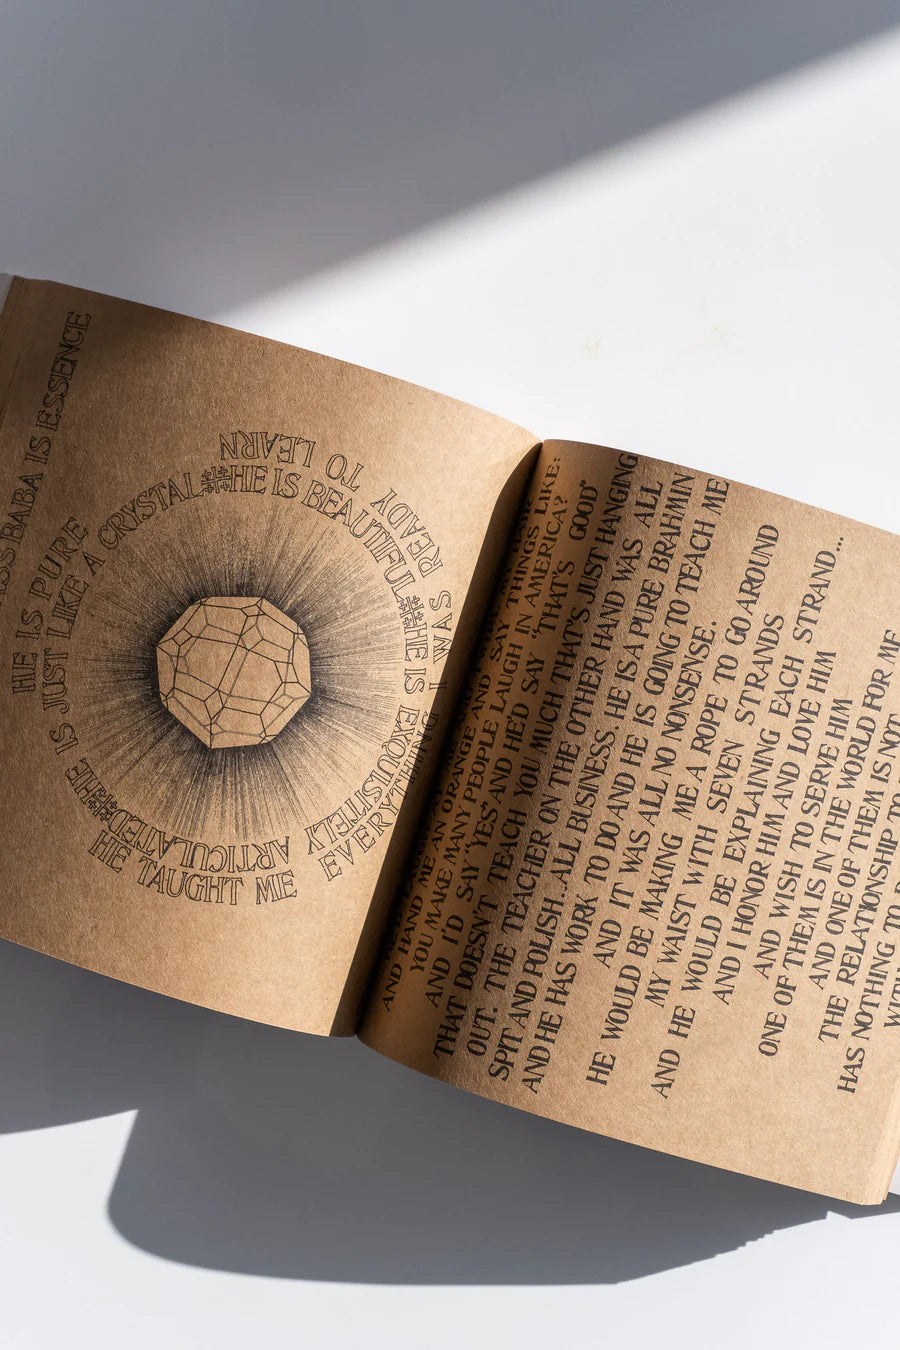 BABA IS ESSENCE
HE IS PURE
HE IS JUST LIKE A CRYSTAL ⌗⌗ HE IS BEAUTIFUL ⌗⌗ HE IS EXQUISITELY ARTICULATED ⌗⌗
HE TAUGHT ME EVERYTHING AND I WAS READY TO LEARN
AND HAND ME AN ORANGE AND SAY THINGS LIKE:
YOU MAKE MANY PEOPLE LAUGH IN AMERICA?
AND I'D SAY "YES" AND HE'D SAY "THAT'S GOOD"
THAT DOESN'T TEACH YOU MUCH THAT'S JUST HANGING
OUT. THE TEACHER ON THE OTHER HAND WAS ALL
SPIT AND POLISH..ALL BUSINESS. HE IS A PURE BRAHMIN
AND HE HAS WORK TO DO AND HE IS GOING TO TEACH ME
AND IT WAS ALL NO NONSENSE.
HE WOULD BE MAKING ME A ROPE TO GO AROUND
MY WAIST WITH SEVEN STRANDS
AND HE WOULD BE EXPLAINING EACH STRAND...
AND I HONOR HIM AND LOVE HIM
AND WISH TO SERVE HIM
ONE OF THEM IS IN THE WORLD FOR ME
AND ONE OF THEM IS NOT
THE RELATIONSHIP TO
HAS NOTHING TO